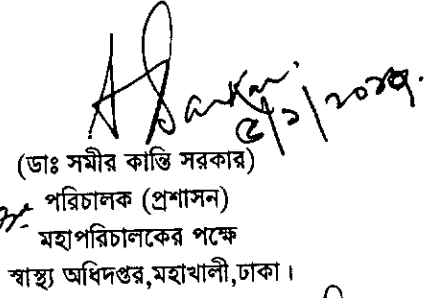 (ডাঃ সমীর কান্তি সরকার)
পরিচালক (প্রশাসন)
মহাপরিচালকের পক্ষে
স্বাস্থ্য অধিদপ্তর,মহাখালী,ঢাকা।